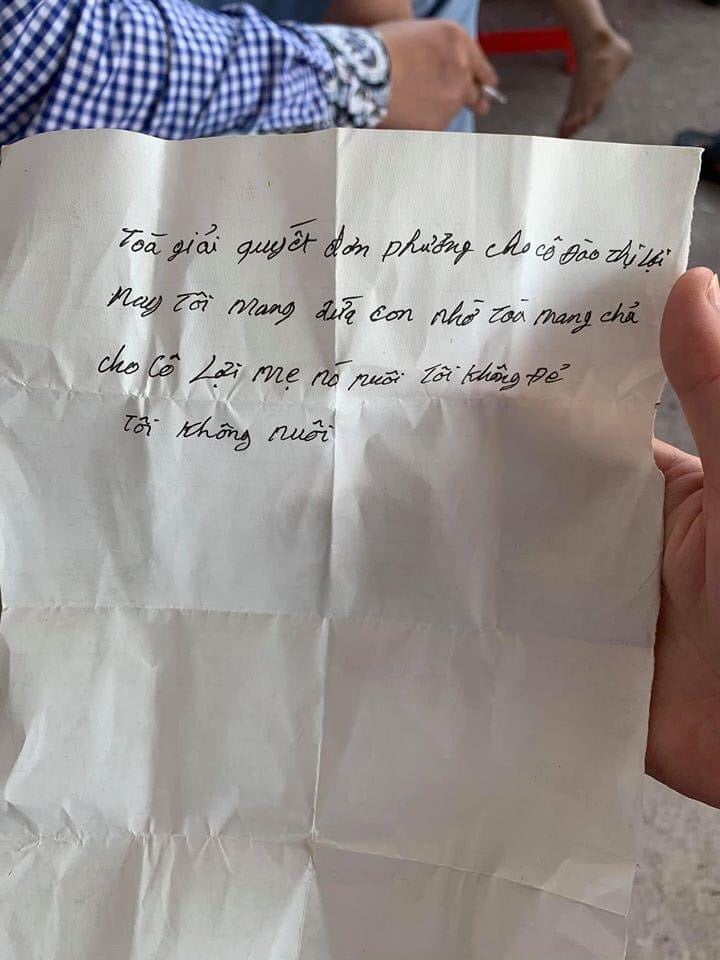 Toà giải quyết đơn phưởng cho cô Đào Thị Lợi
Nay Tôi mang đứa con nhờ Toà mang chả
cho Cô Lợi mẹ nó nuôi Tôi không Đẻ
Tôi không nuôi